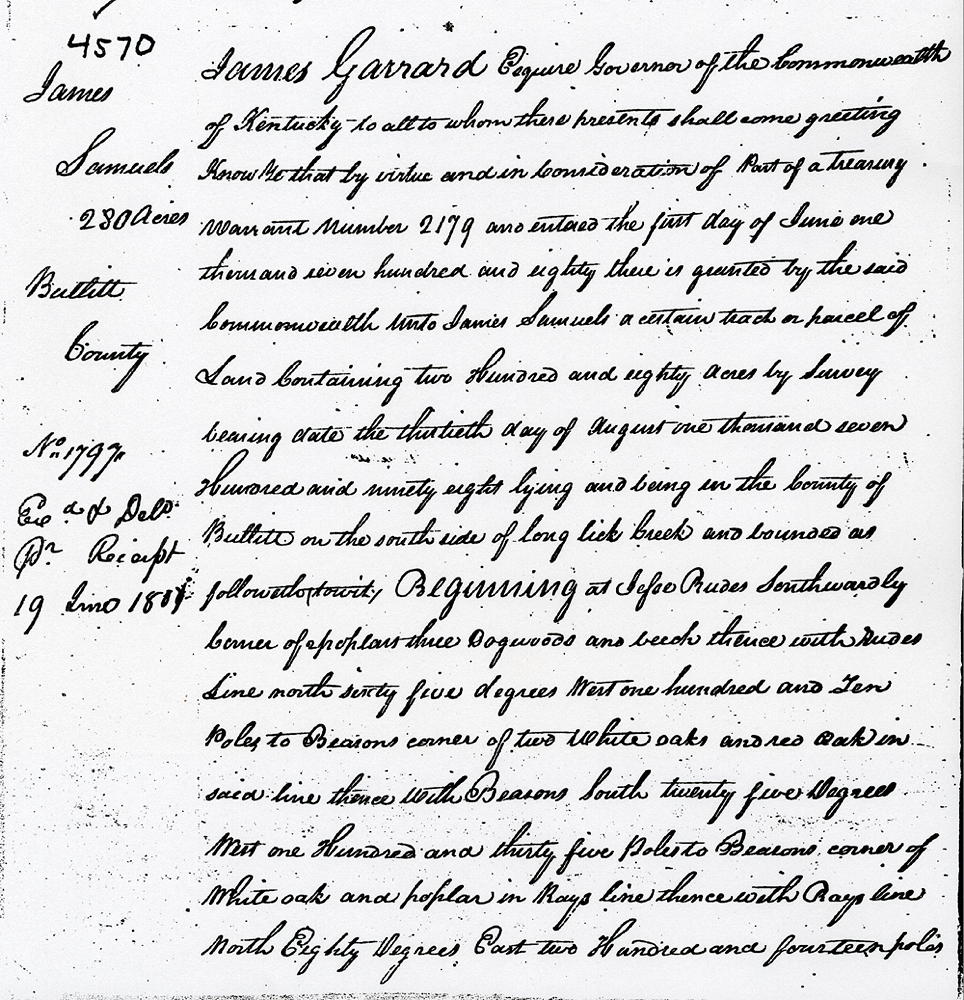 4570
James
Samuels
280 Acres
Bullitt
County
No. 1797.
Exd & Deld
Pr Reciept
19 June 1801
James Garrard Esquire Governor of the Commonwealth
of Kentucky to all to whom these presents shall come greeting
Know Ye that by virtue and in Consideration of Part of a Treasury
Warrant Number 2179 and entered the first day of June one
thousand seven hundred and eighty there is granted by the said
Commonwealth Unto James Samuels a certain tract or parcel of
Land Containing two Hundred and eighty Acres by Survey
bearing date the thirtieth day of August one thousand seven
Hundred and ninety eight lying and being in the County of
Bullitt on the south side of long lick Creek and bounded as
followeth, towit, Beginning at Jesse Rudes Southwardly
Corner of a poplar three Dogwoods and beech thence with Rudes
Line north sixty five degrees West one hundred and Ten
Poles to Beasons corner of two White oaks and red Oak in
said line thence With Beasons South twenty five Degrees
West one Hundred and thirty five Poles to Beasons corner of
White oak and poplar in Rays line thence with Rays line
North Eighty Degrees East two Hundred and fourteen poles